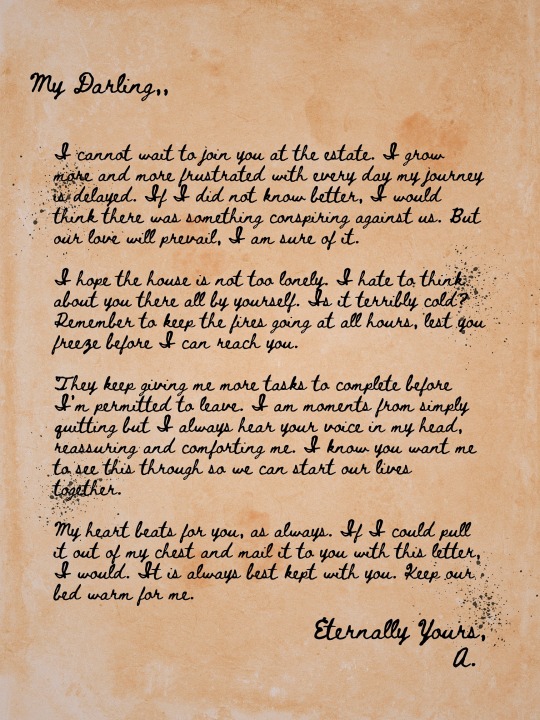 My Darling,,
I cannot wait to join you at the estate. I grow
more and more frustrated with every day my journey
is delayed. If I did not know better, I would
think there was something conspiring against us. But
our love will prevail, I am sure of it.
I hope the house is not too lonely. I hate to think
about you there all by yourself. Is it terribly cold?
Remember to keep the fires going at all hours, lest you
freeze before I can reach you.
They keep giving me more tasks to complete before
I'm permitted to leave. I am moments from simply
quitting but I always hear your voice in my head,
reassuring and comforting me. I know you want me
to see this through so we can start our lives
together.
My heart beats for you, as always. If I could pull
it out of my chest and mail it to you with this letter,
I would. It is always best kept with you. Keep our
bed warm for me.
Eternally Yours,
A.